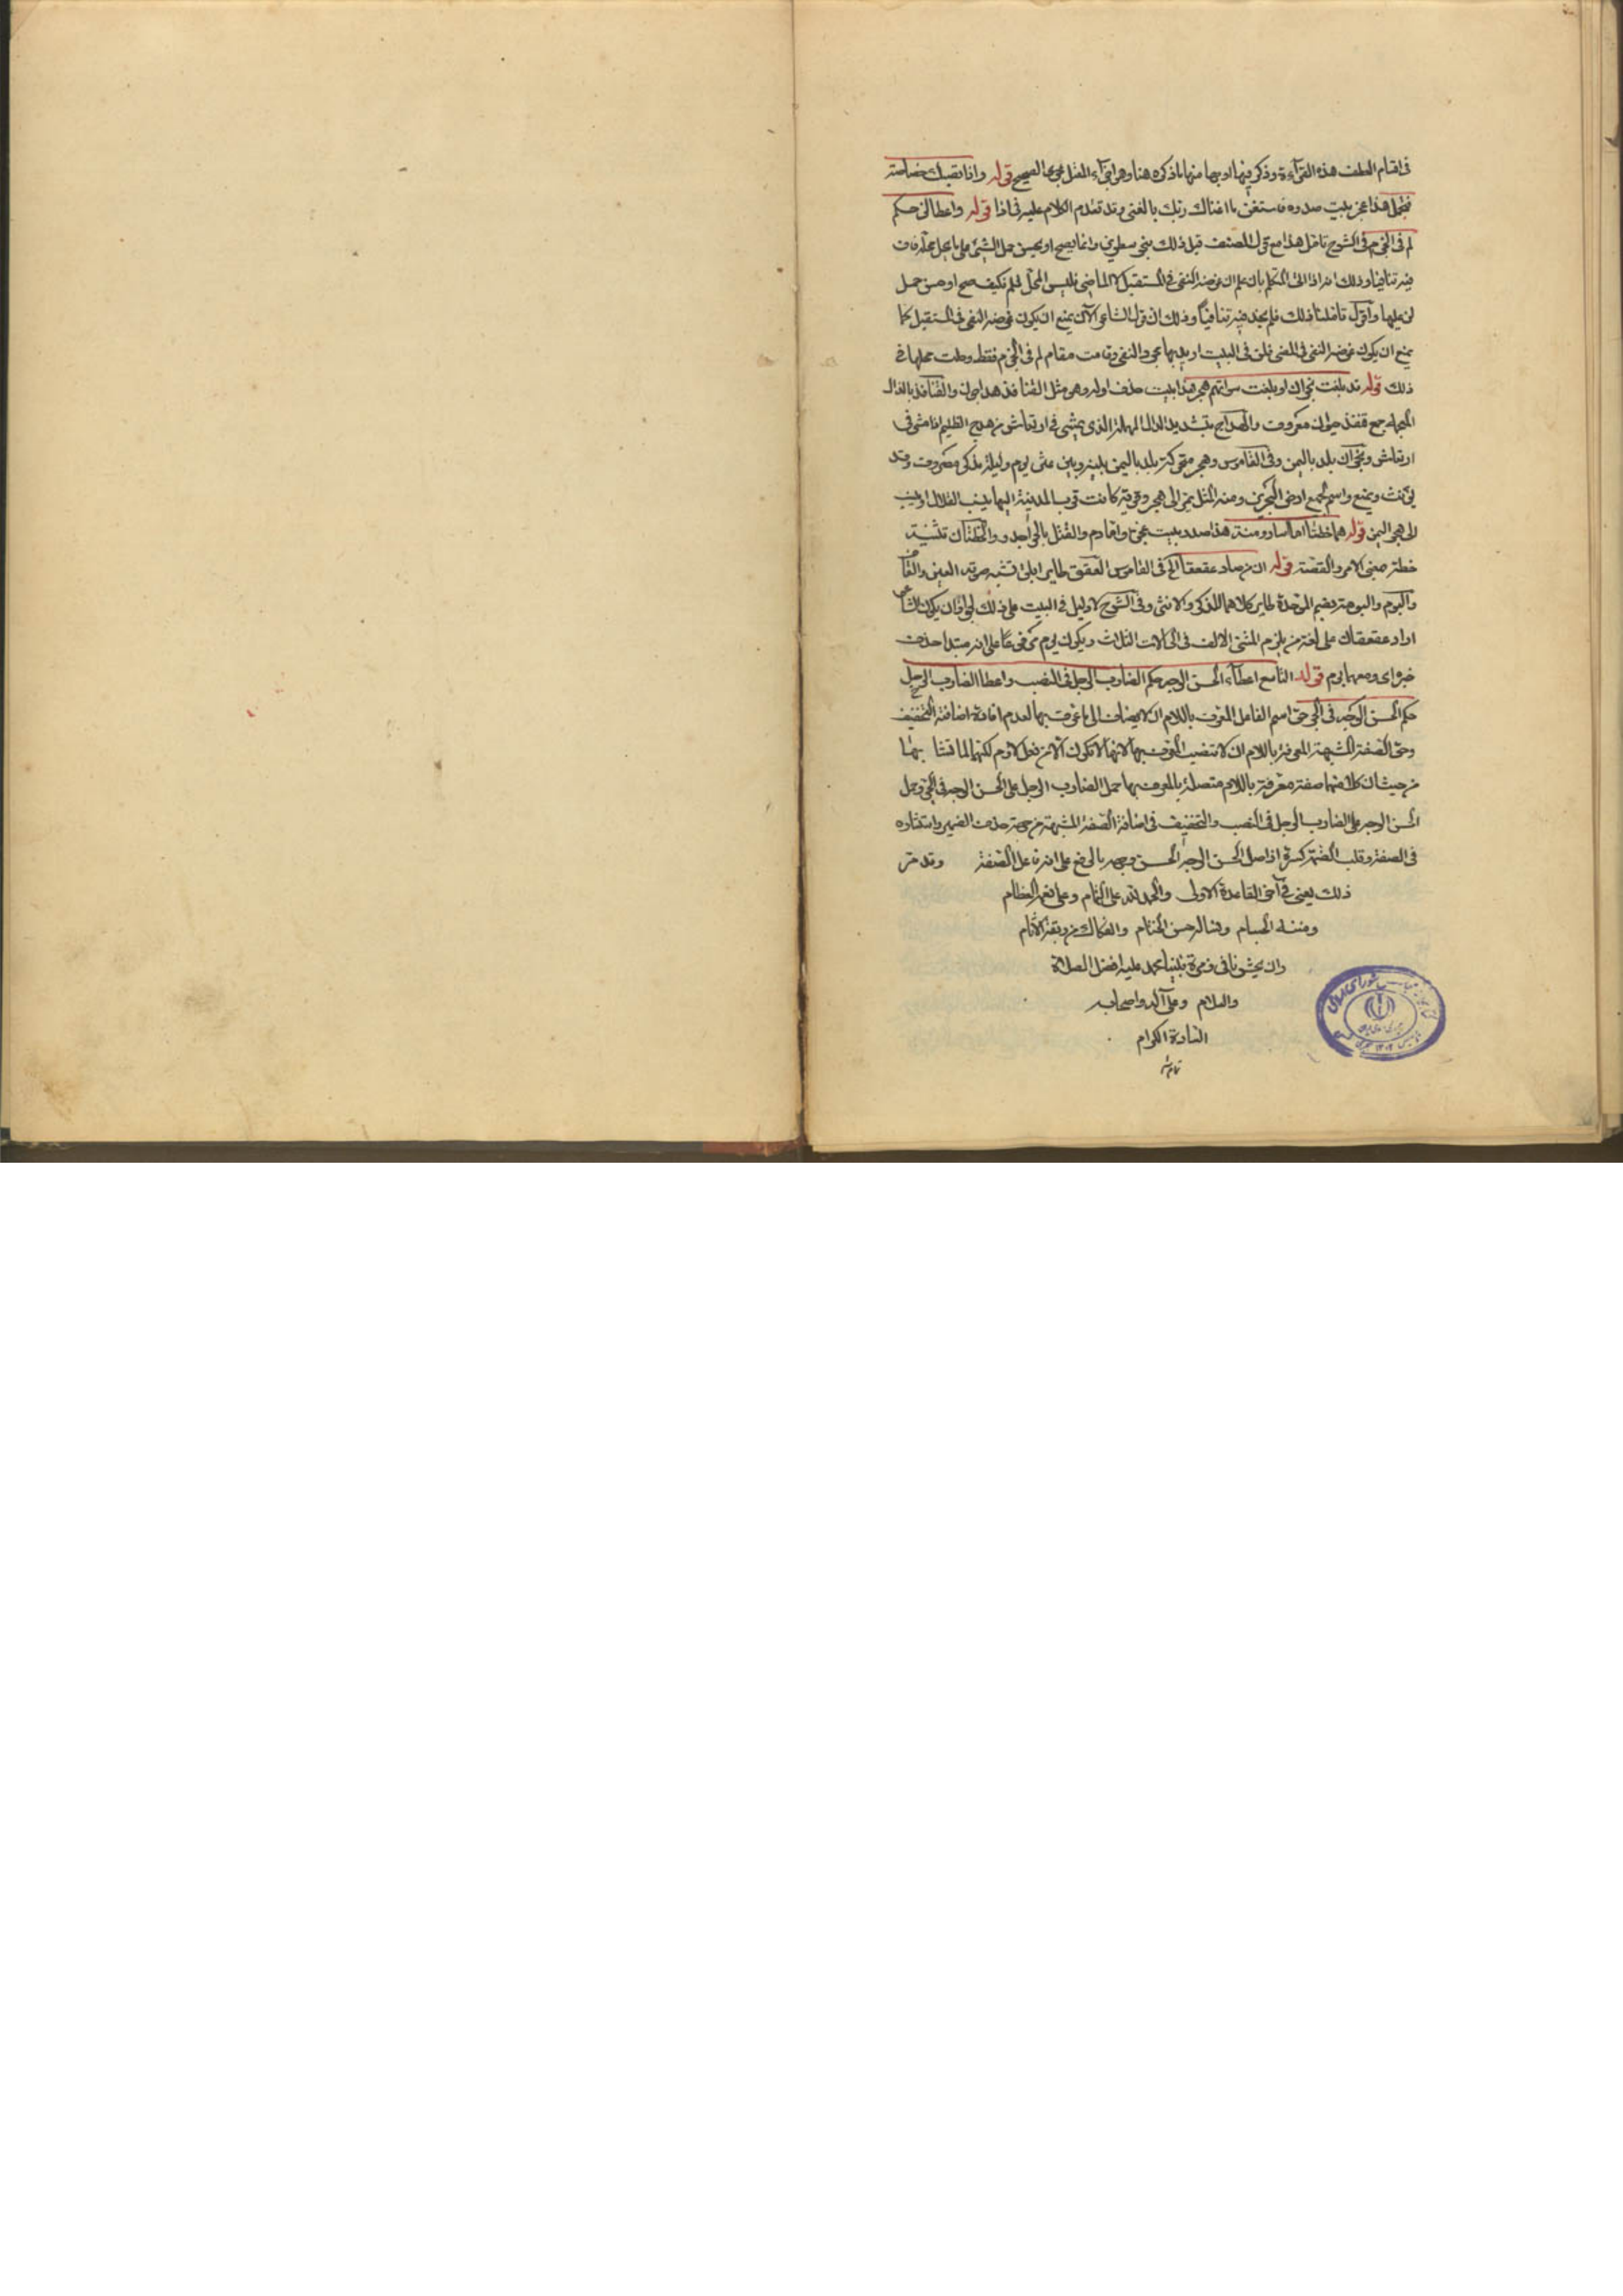 فى اقسام العطف هذه القرآءة وذكر فيها اوجها منها ما ذكره هنا وهو اجرآء المعتل مجرى الصحيح قوله واذا تصبك خصاصة
فتجمل هذا عجز بيت صدره فاستغن ما اغناك ربك بالغنى وقد تقدم الكلام عليه فى اذا قوله واعطا لن حكم
لم فى الجزم فى الشرح تامل هذا مع قول المصنف قبل ذلك بنحو سطرين وانما يصح او يحسن حمل الشئ على ما يحل محله فان
فيه تنافيا وذلك انه اذا اتى المتكلم بان علم ان غرضه النفى فى المستقبل لا الماضى فليس المحل للم فكيف صح او حسن حمل
لن عليها واقول تاملنا ذلك فلم نجد فيه تنافياً وذلك ان قول الشاعر الآن يمنع ان يكون غرضه النفى فى المستقبل كما
يمنع ان يكون غرضه النفى فى المضى فلن فى البيت اريد بها مجرد النفى وقامت مقام لم فى الجزم فقط وحلت محلها فى
ذلك قوله قد بلغت نجران او بلغت سوآتهم هجر هذا بيت حذف اوله وهو مثل القنافذ هداجون والقنافذ بالذال
المعجمة جمع قنفذ حيوان معروف والهداج بتشديد الدال المهملة الذى يمشى فى ارتعاش من هدج الظليم اذا مشى فى
ارتعاش ونجران بلد باليمن وفى القاموس وهجر محركة بلد باليمن بينه وبين عثر يوم وليلة مذكر مصروف وقد
يؤنث ويمنع واسم لجميع ارض البحرين ومنه المثل كمبضع تمر الى هجر وقرية كانت قرب المدينة اليها ينسب القلال او ينسب
الى هجر اليمن قوله هما خطتا اما اسار ومنة هذا صدر بيت عجزه واما دم والقتل بالحر اجدر والخطتان تثنية
خطة معنى الامر والقصة قوله ان من صاد عقعقاً الخ فى القاموس العقعق طاير ابلق تشبه صوته العين والقاف
والبوم والبومة بضم الموحدة طاير كلاهما للذكر والانثى وفى الشرح لا دليل فى البيت على ذلك لجواز ان يكون الشاعر
اراد عقعقان على لغة من يلزم المثنى الالف فى الحالات الثلاث ويكون بوم مرفوعا على انه مبتدا حذف
خبره اى ومعهما بوم قوله التاسع اعطآء الحسن الوجه حكم الضارب الرجل فى النصب واعطا الضارب الرجل
حكم الحسن الوجه فى الجر حق اسم الفاعل المعرف باللام ان لا يضاف الى ما عرف بها لعدم افادة اضافته التخفيف
وحق الصفة المشبهة المعرفة باللام ان لا تنصب المعرف بها لانها لا تكون الا من فعل لازم لكنهما لما تشابها
من حيث ان كلا منهما صفة معرفة باللام متصلة بالمعرف بها حمل الضارب الرجل على الحسن الوجه فى الجر وحمل
الحسن الوجه على الضارب الرجل فى النصب والتخفيف فى اضافة الصفة المشبهة من جهة حذف الضمير واستتاره
فى الصفة وقلب الضمة كسرة اذ اصل الحسن الوجه الحسن وجهه بالرفع على انه فاعل الصفة وقد مر
ذلك يعنى فى آخر القاعدة الاولى والحمد لله على التمام وعلى نعمه العظام
ومننه الجسام وفنا لرحسن الختام والفكاك من ربقة الآثام
وان يحشرنا فى زمرة نبينا محمد عليه افضل الصلاة
والسلام وعلى آله واصحابه
السادة الكرام
تمام شد